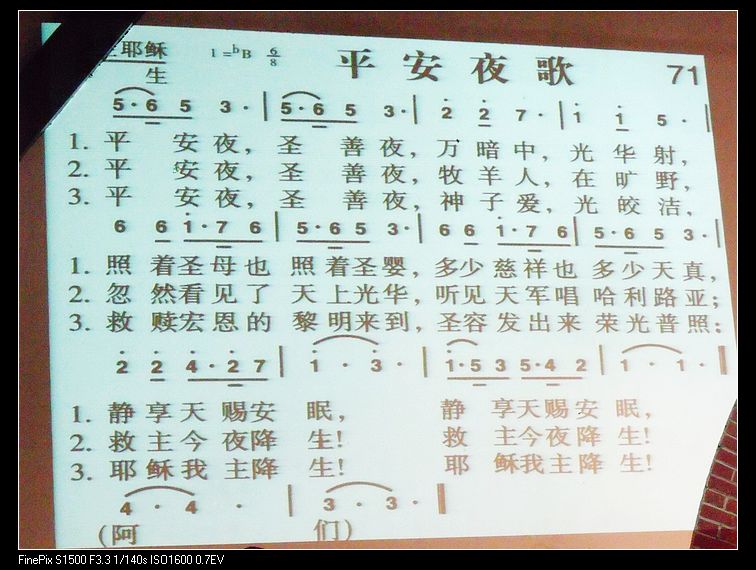 耶稣 1=♭B 6/8 平安夜歌 71
生
5·6 5 3· | 5·6 5 3· | 2 2 7· | 1 1 5· |
1. 平 安夜, 圣 善夜, 万暗中, 光华射,
2. 平 安夜, 圣 善夜, 牧羊人, 在旷野,
3. 平 安夜, 圣 善夜, 神子爱, 光皎洁,
6 6 1·7 6 | 5·6 5 3· | 6 6 1·7 6 | 5·6 5 3· |
1. 照着圣母也 照着圣婴, 多少慈祥也 多少天真,
2. 忽然看见了 天上光华, 听见天军唱 哈利路亚;
3. 救赎宏恩的 黎明来到, 圣容发出来 荣光普照:
2 2 4·2 7 | 1· 3· | 1·5 3 5·4 2 | 1· 1·
1. 静享天赐安 眠, 静 享天赐安 眠,
2. 救主今夜降 生! 救 主今夜降 生!
3. 耶稣我主降 生! 耶 稣我主降 生!
4· 4· | 3· 3·
(阿 们)
FinePix S1500 F3.3 1/140s ISO1600 0.7EV